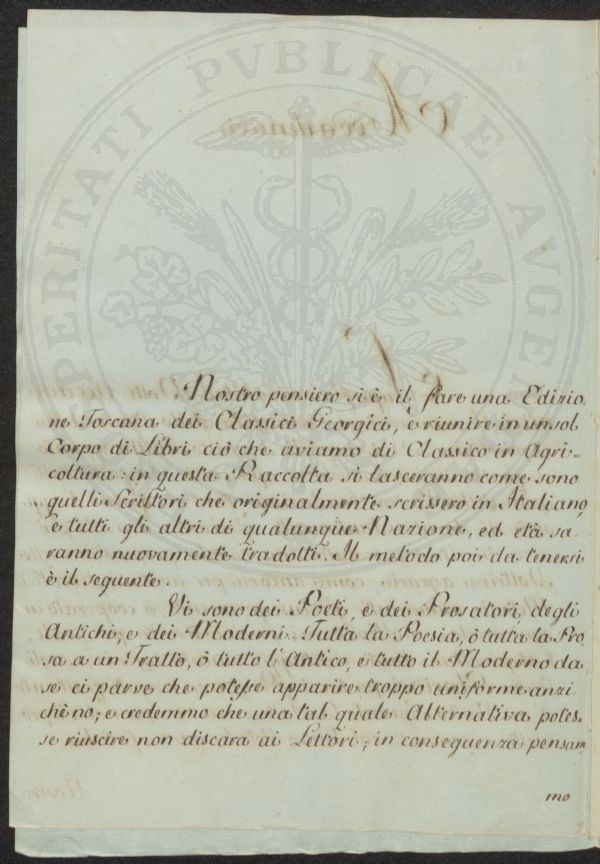 PERITATI PVBLICAE AVGEN
Nostro pensiero si è il fare una Edizio
ne Toscana dei Classici Georgici, e riunire in un sol
Corpo di Libri ciò che aviamo di Classico in Agri-
coltura: in questa Raccolta si lasceranno come sono
quelli Scrittori che originalmente scrissero in Italiano,
e tutti gli altri di qualunque Nazione, ed età sa-
ranno nuovamente tradotti. Il metodo poi da tenersi
è il seguente.
Vi sono dei Poeti, e dei Prosatori, degli
Antichi, e dei Moderni. Tutta la Poesia, ò tutta la Pro
sa a un Tratto, ò tutto l'Antico, e tutto il Moderno da
se ci parve che potesse apparire troppo uniforme anzi
chè nò; e credemmo che una tal quale Alternativa potes-
se riuscire non discara ai Lettori; in conseguenza pensam
mo